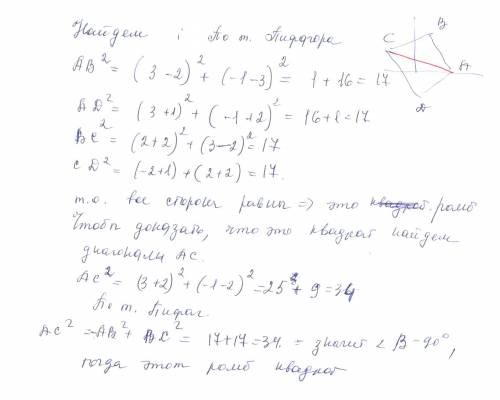 Найдем i По т. Пифагора
AB² = (3-2)² + (-1-3)² = 1+16 = 17
AD² = (3+1)² + (-1+2)² = 16+1 = 17
BC² = (2+2)² + (3-2)² = 17
CD² = (-2+1) + (2+2) = 17.
т.о. все стороны равны => это квадрат ромб
Чтобы доказать, что это квадрат найдем
диагонали AC.
AC² = (3+2)² + (-1-2)² = 25 + 9 = 34
По т. Пифаг.
AC² = AB² + BC² = 17+17 = 34. = значит < B - 90°,
тогда этот ромб квадрат
B
C
A
D